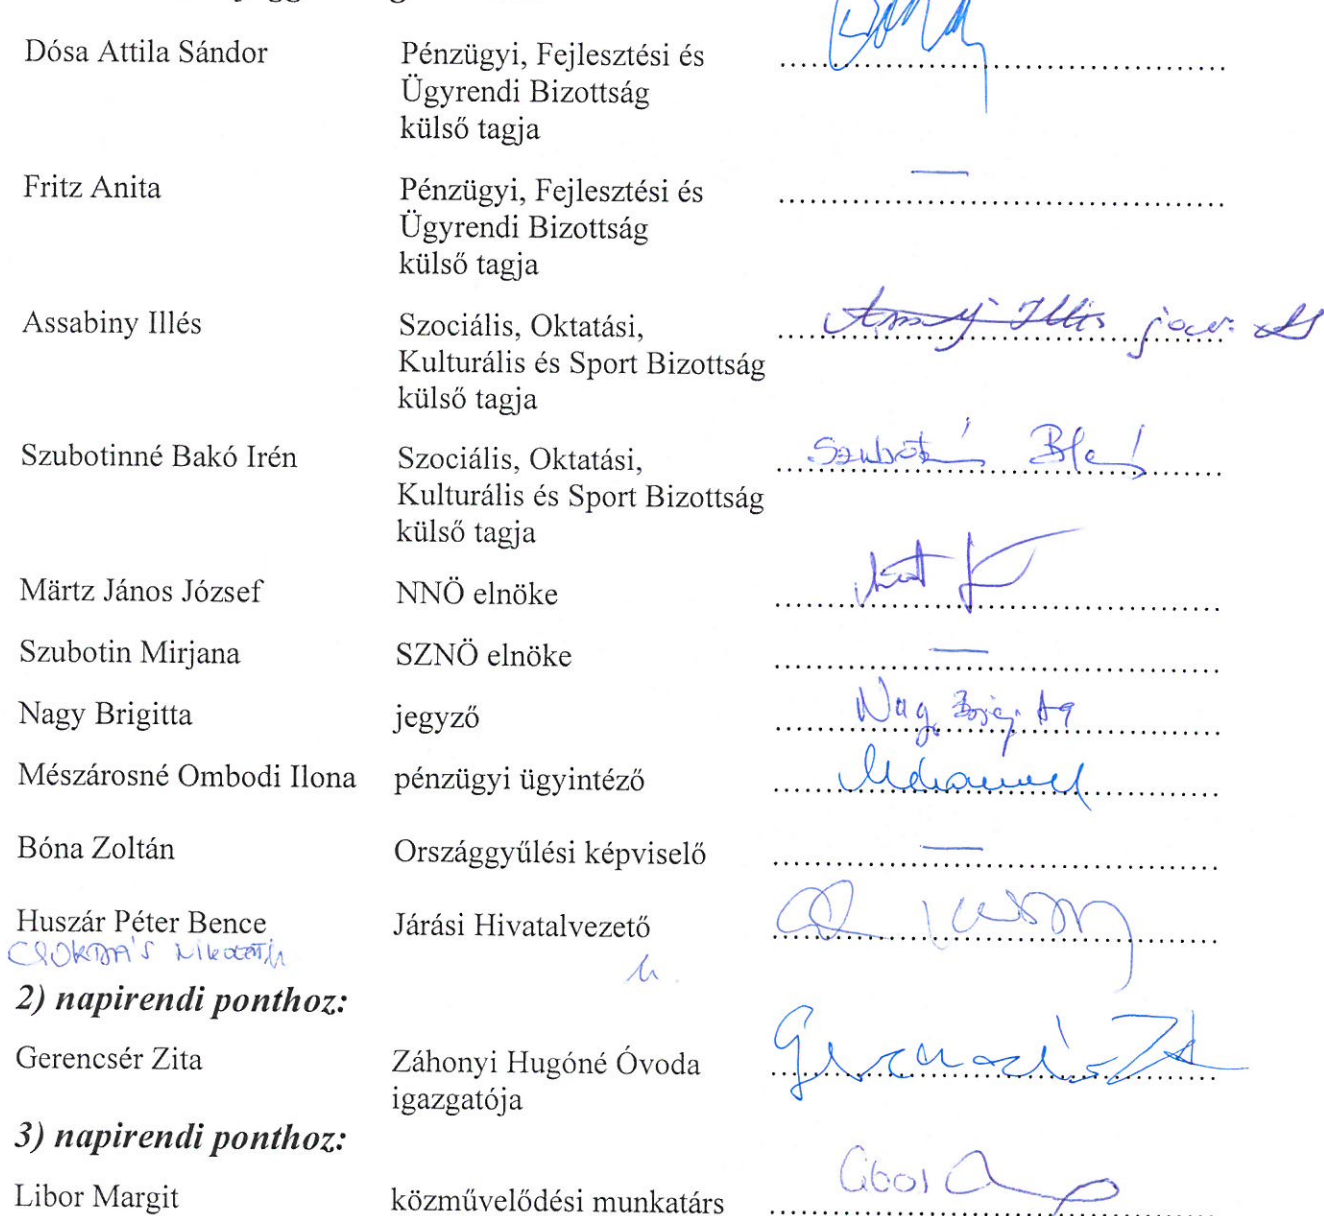 Dósa Attila Sándor Pénzügyi, Fejlesztési és
Ügyrendi Bizottság
külső tagja
Fritz Anita Pénzügyi, Fejlesztési és
Ügyrendi Bizottság
külső tagja
Assabiny Illés Szociális, Oktatási,
Kulturális és Sport Bizottság
külső tagja
Szubotinné Bakó Irén Szociális, Oktatási,
Kulturális és Sport Bizottság
külső tagja
Märtz János József NNÖ elnöke
Szubotin Mirjana SZNÖ elnöke
Nagy Brigitta jegyző
Mészárosné Ombodi Ilona pénzügyi ügyintéző
Bóna Zoltán Országgyűlési képviselő
Huszár Péter Bence Járási Hivatalvezető
2) napirendi ponthoz:
Gerencsér Zita Záhonyi Hugóné Óvoda
igazgatója
3) napirendi ponthoz:
Libor Margit közművelődési munkatárs